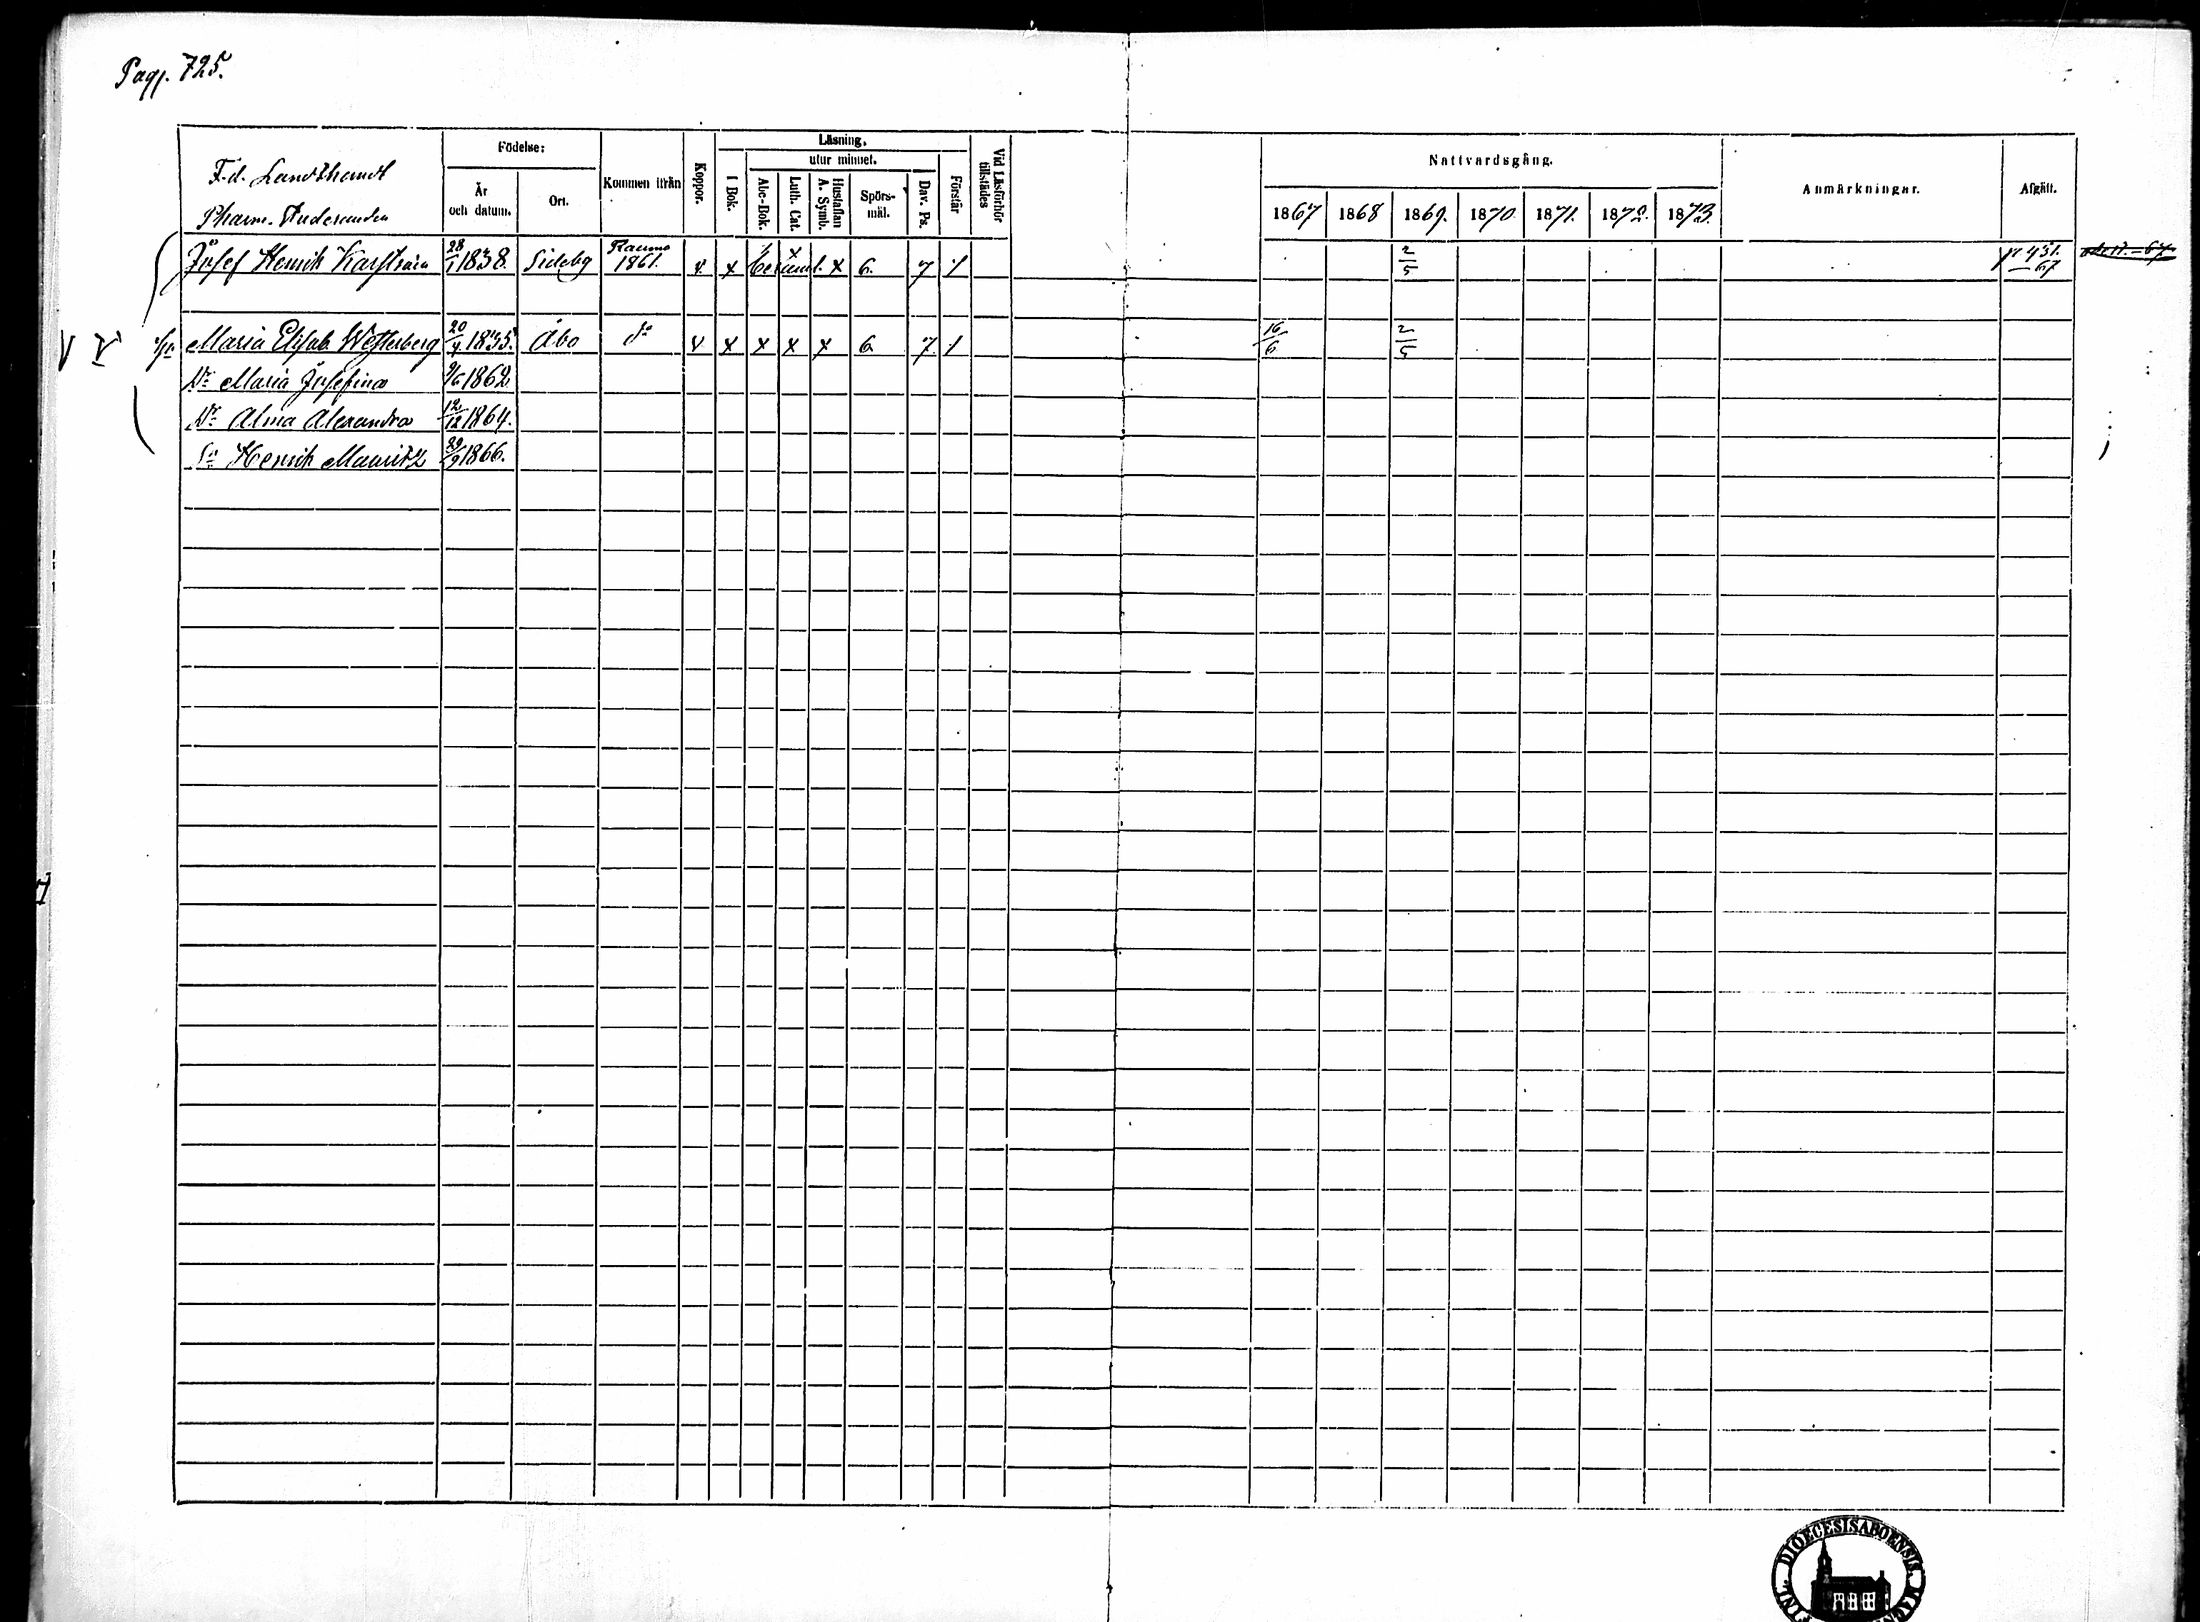 Pag. 725.
F.d. Landthandl
Pharm. Studeranden
Födelse:
År och datum.
Ort.
Kommen ifrån
Koppor.
Läsning,
I Bok.
utur minnet.
Abc-Bok.
Luth. Cat.
Hustaflan A. Symb.
Spörs-mål.
Dav. Ps.
Förstår
Vid Läsförhör tillstädes
Nattvardsgång.
1867 1868 1869. 1870 1871. 1872. 1873.
Anmärkningar.
Afgått.
Josef Henrik Karström 28/1 1838. Sideby Raumo 1861. v. x x x 6. 7 1 2/5 p 451. 67
Hu Maria Elisab. Westerberg 20/4 1835. Åbo do v x x x x 6. 7. 1 16/6 2/5
Dr Maria Josefina 9/6 1862.
Dr Alma Alexandra 12/12 1864.
Sn Henrik Mauritz 29/9 1866.
FINL. DIOECESIS ABOENSIS. MAGN